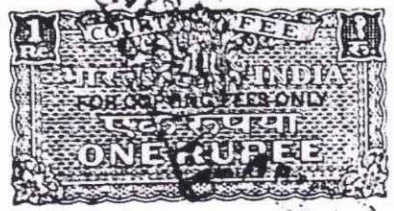 1 COURT FEE १
Re. रु.
भारत INDIA
FOR COPYING FEES ONLY
एक रुपया
ONE RUPEE